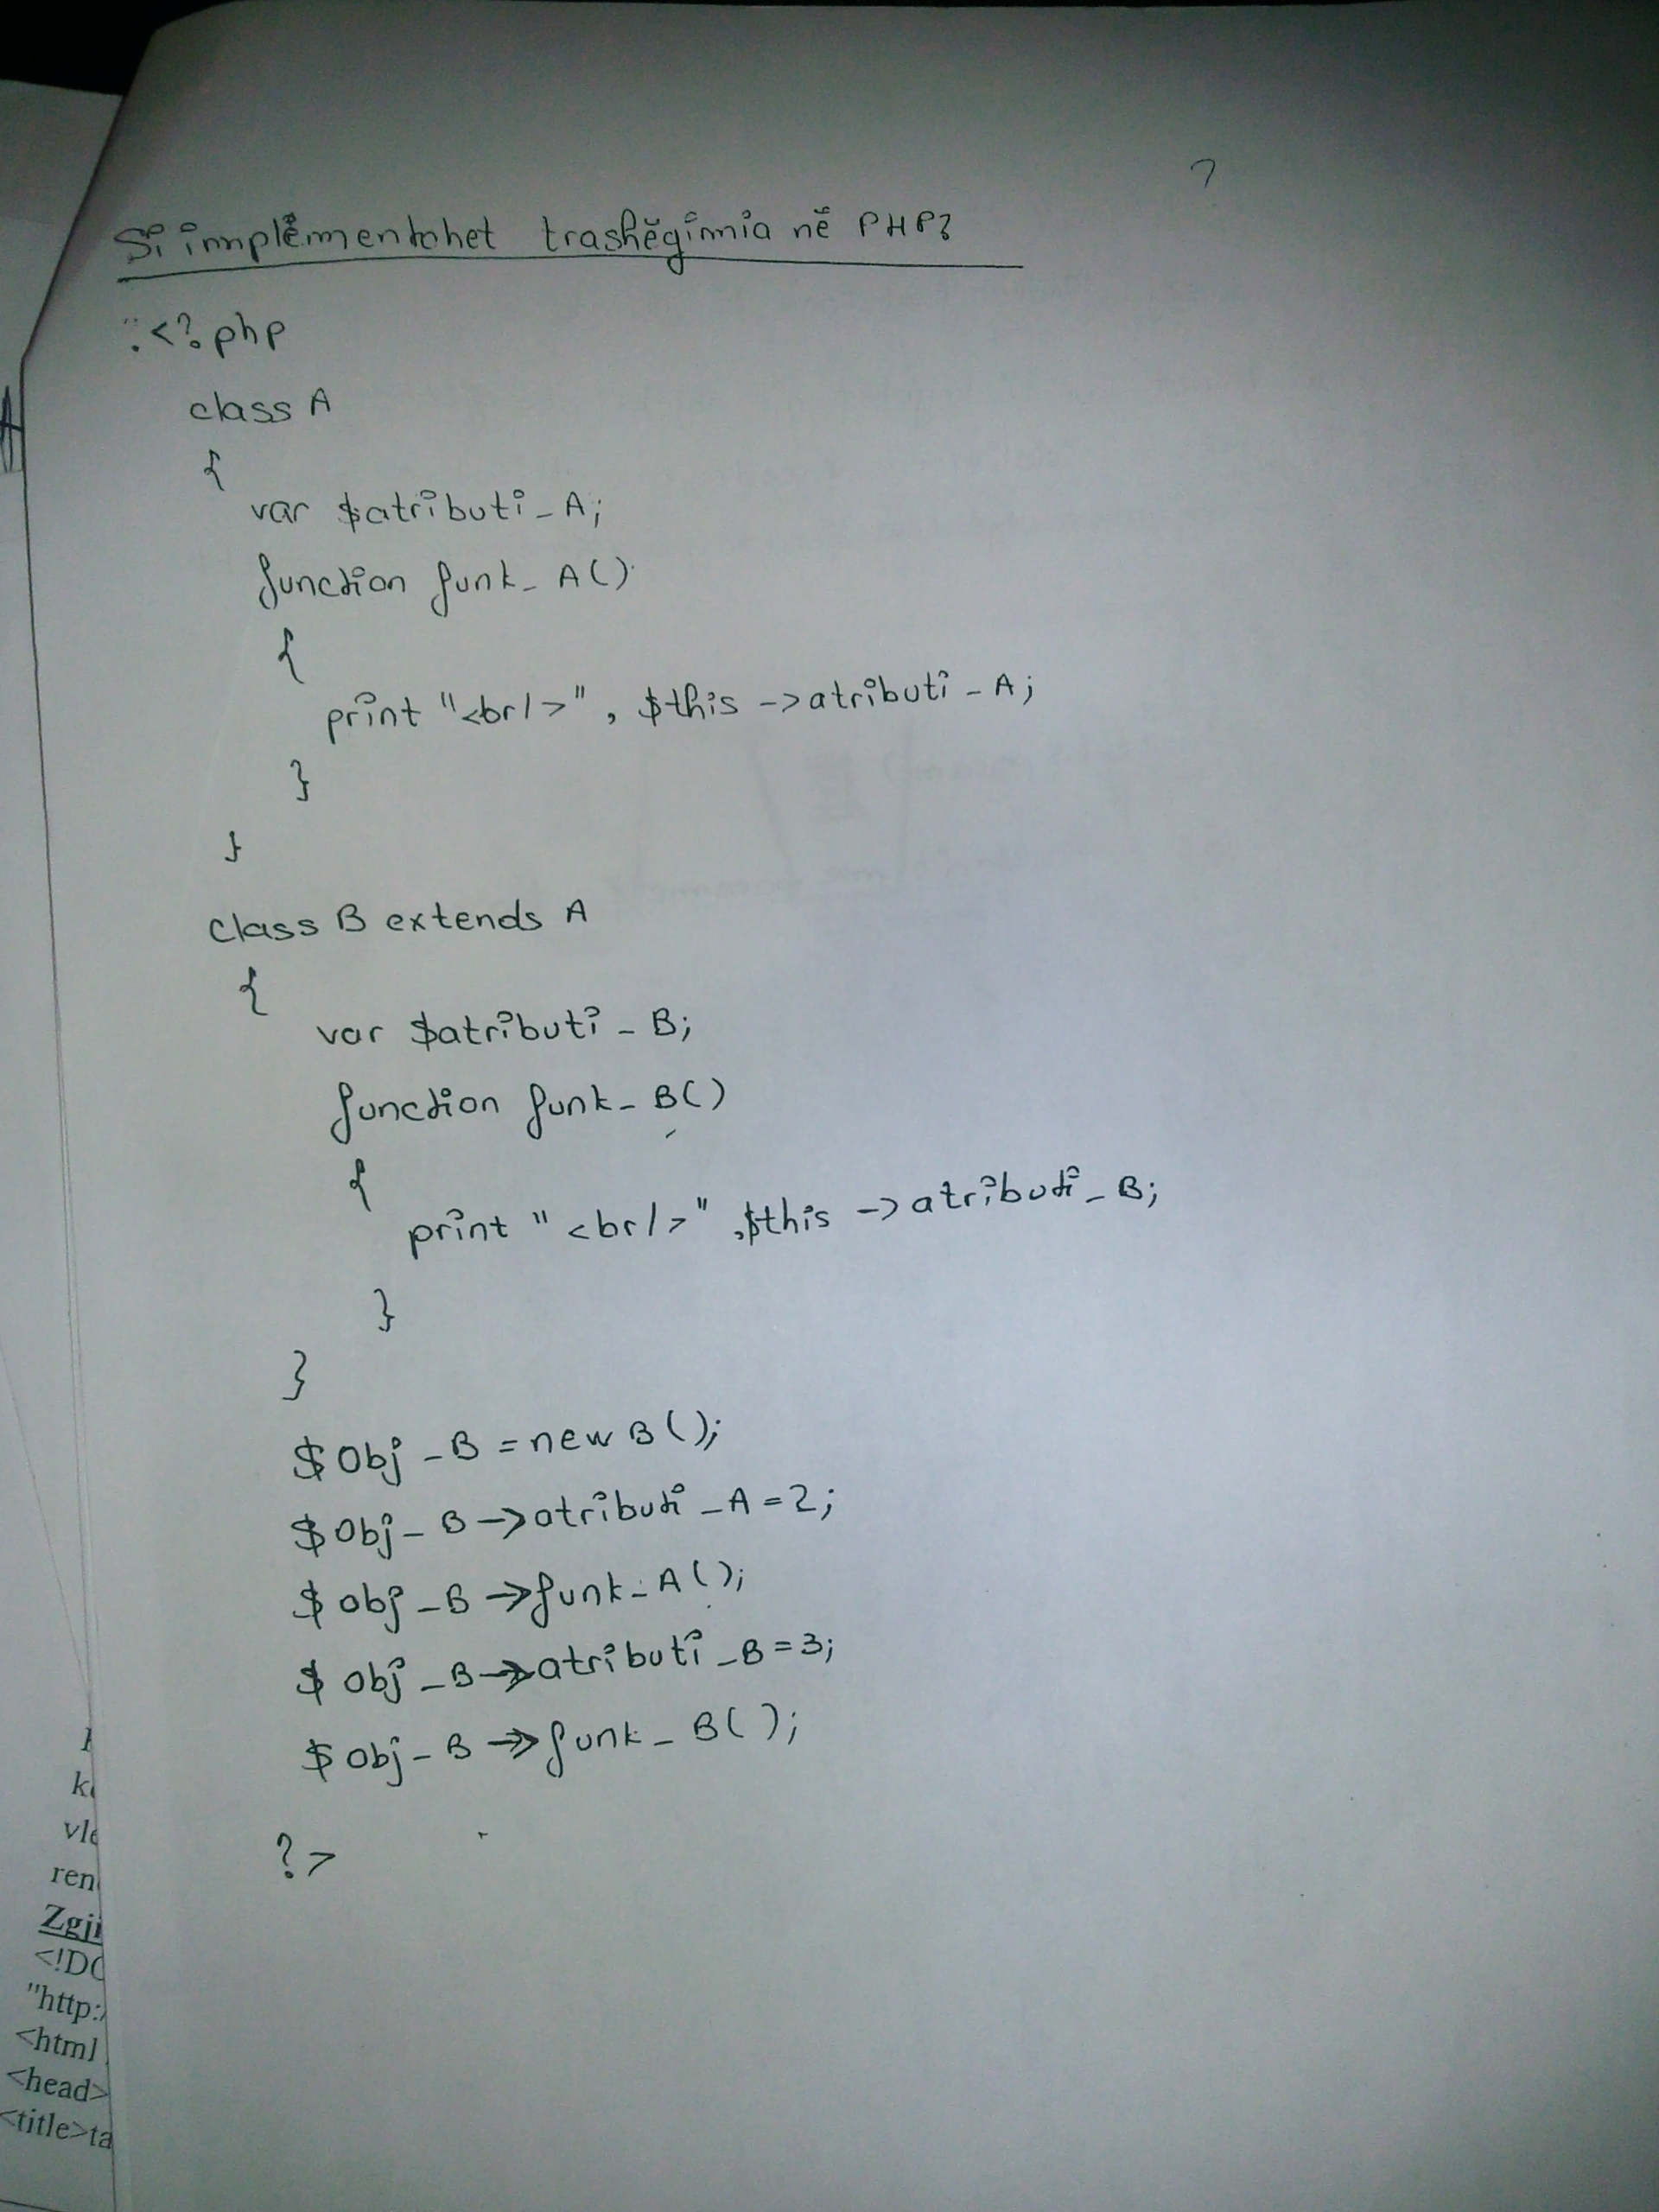 ?
Si implementohet trashëgimia në PHP?
<?php
class A
{
var $atributi_A;
function funk_A()
{
print "<br/>", $this->atributi_A;
}
}
class B extends A
{
var $atributi_B;
function funk_B()
{
print "<br/>", $this->atributi_B;
}
}
$obj_B = new B();
$obj_B->atributi_A=2;
$obj_B->funk_A();
$obj_B->atributi_B=3;
$obj_B->funk_B();
?>
A
vle
ren
Zgji
<!DO
"http:/
<html
<head>
<title>ta